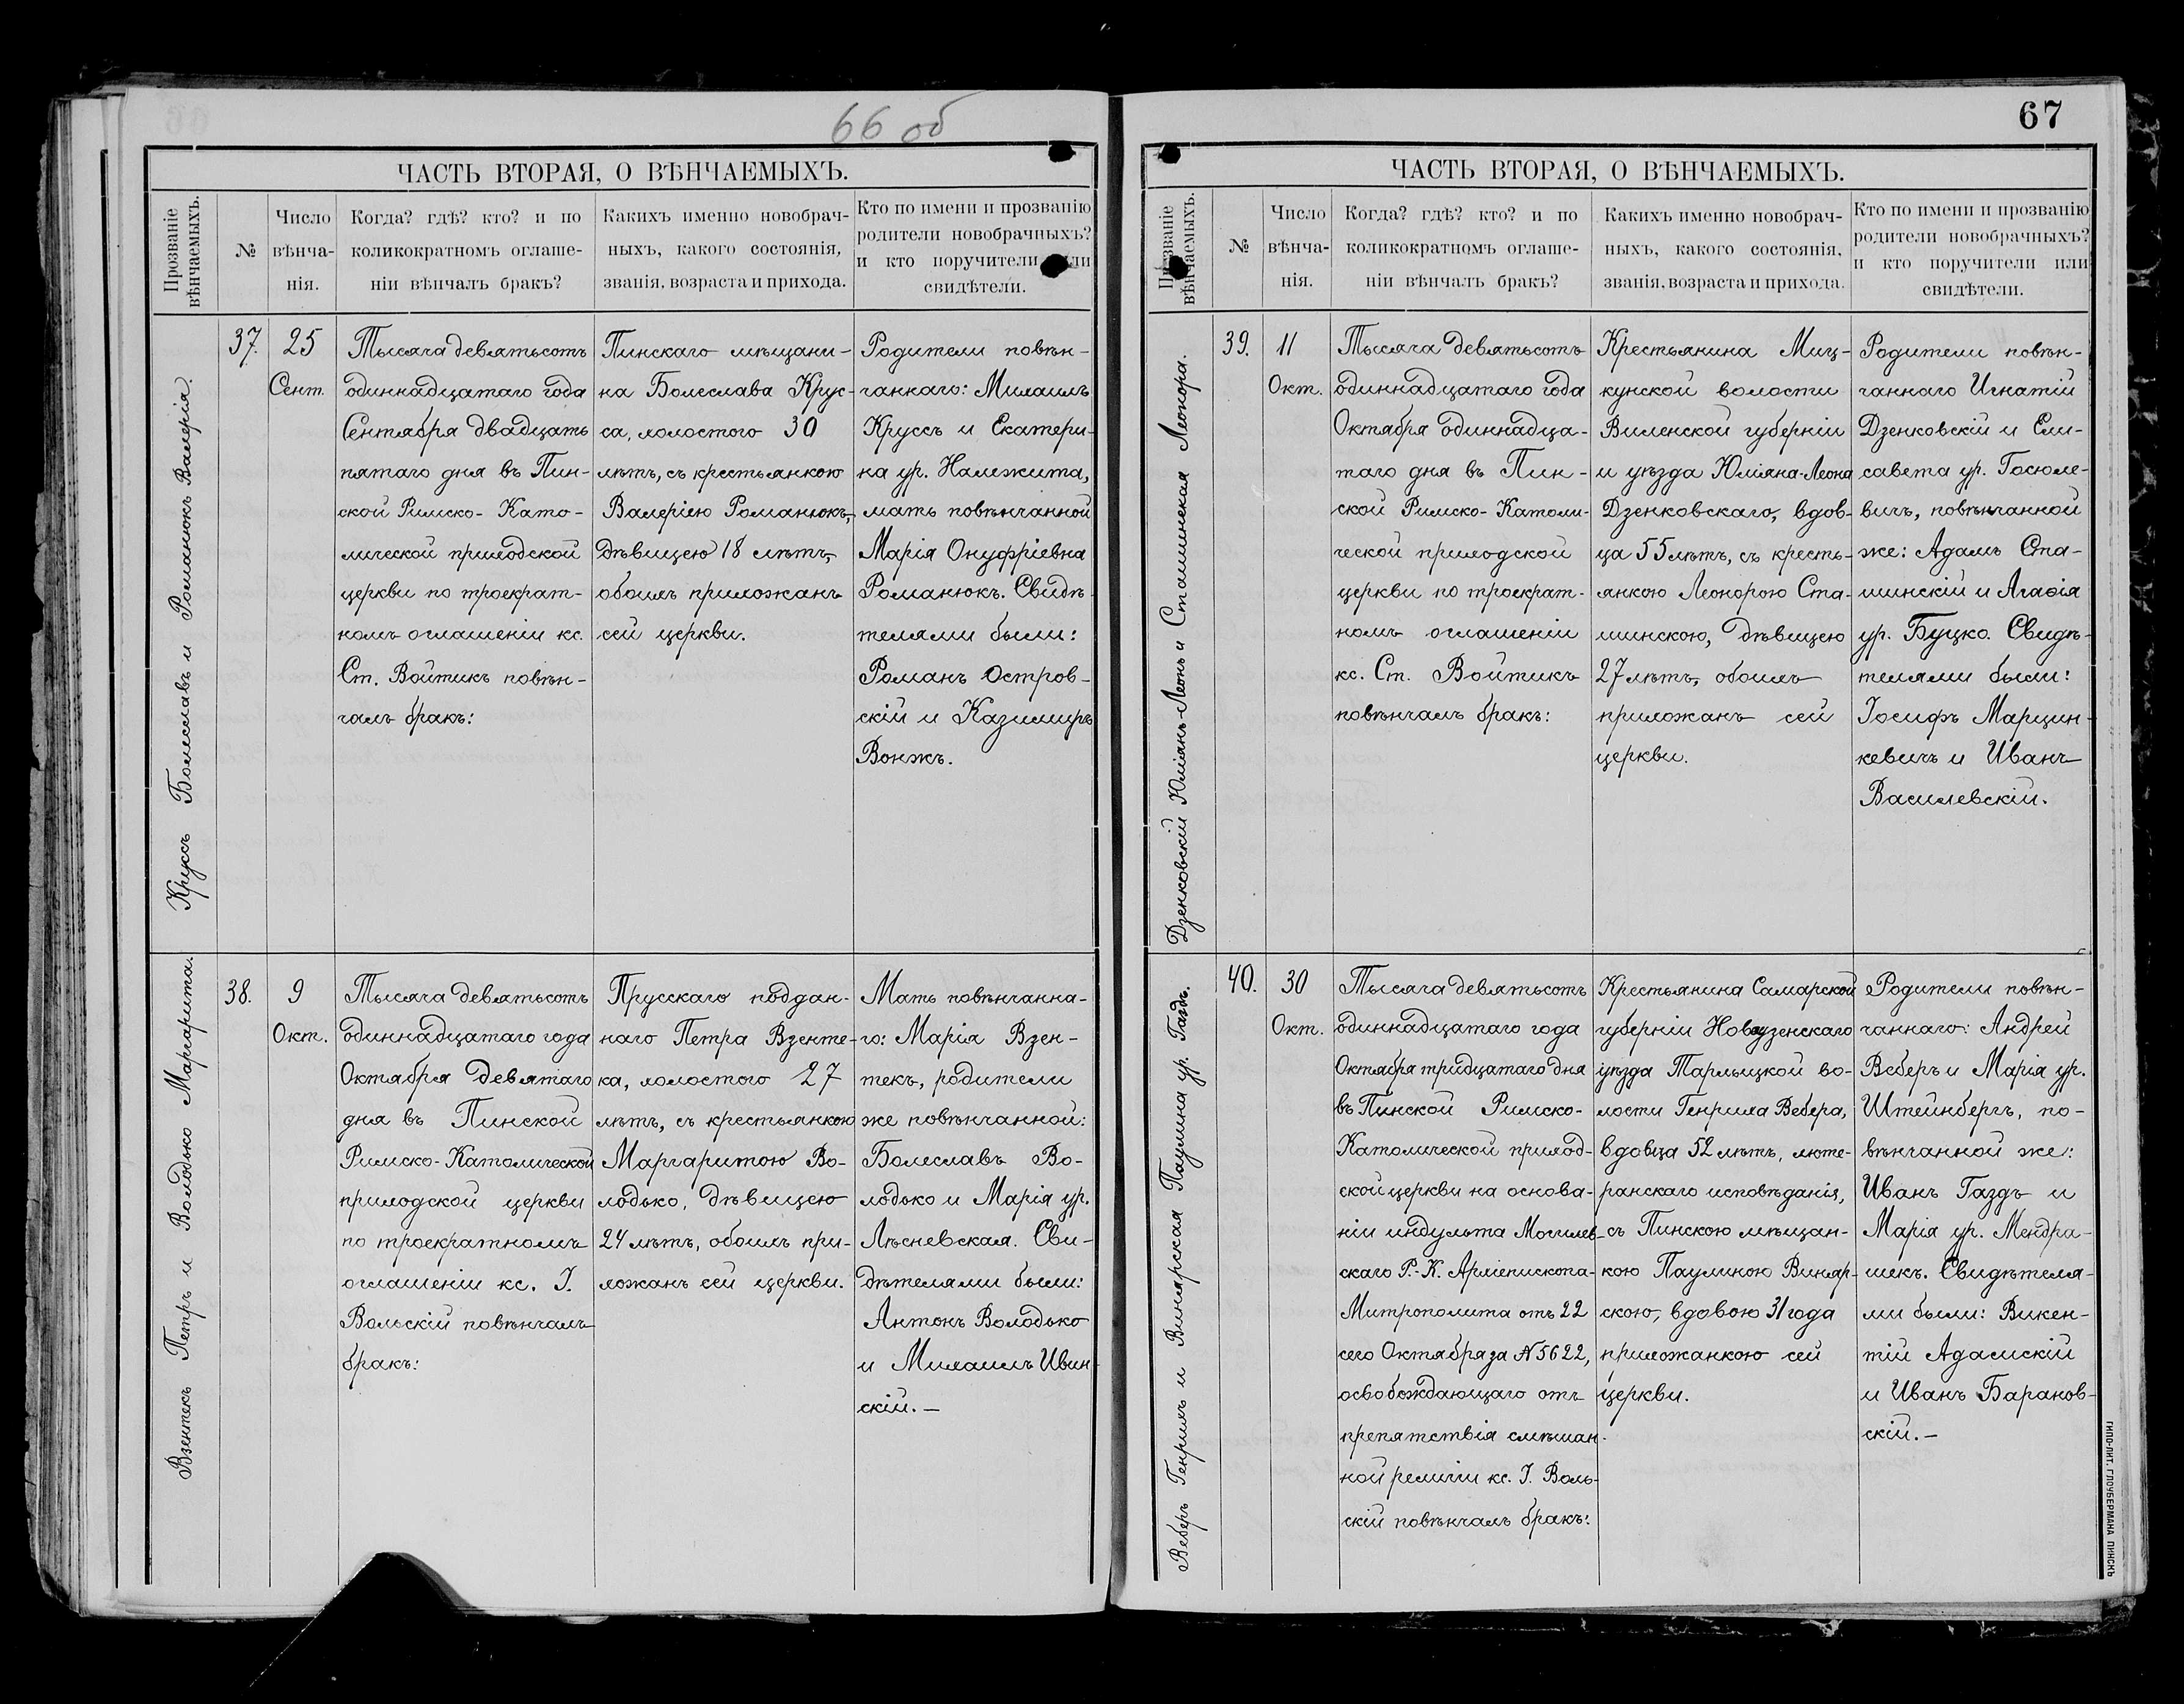 66 об
ЧАСТЬ ВТОРАЯ, О ВѢНЧАЕМЫХЪ.
Прозваніе
вѣнчаемыхъ.
№
Число
вѣнча-
нія.
Когда? гдѣ? кто? и по
коликократномъ оглаше-
ніи вѣнчалъ бракъ?
Какихъ именно новобрач-
ныхъ, какого состоянія,
званія, возраста и прихода.
Кто по имени и прозванію
родители новобрачныхъ?
и кто поручители или
свидѣтели.
Круссъ Болеславъ и Романюкъ Валерія.
37.
25
Сент.
Тысяча девятьсотъ
одиннадцатаго года
Сентября двадцать
пятаго дня въ Пин-
ской Римско-Като-
лической приходской
церкви по троекрат-
номъ оглашеніи кс.
Ст. Войтикъ повѣн-
чалъ бракъ:
Пинскаго мѣщани-
на Болеслава Крус-
са, холостого 30
лѣтъ, съ крестьянкою
Валеріею Романюкъ,
дѣвицею 18 лѣтъ,
обоихъ прихожанъ
сей церкви.
Родители повѣн-
чаннаго: Михаилъ
Круссъ и Екатери-
на ур. Належита,
мать повѣнчанной
Марія Онуфріевна
Романюкъ. Свидѣ-
телями были:
Романъ Остров-
скій и Казимиръ
Вонжъ.
Взентекъ Петръ и Володько Маргарита.
38.
9
Окт.
Тысяча девятьсотъ
одиннадцатаго года
Октября девятаго
дня въ Пинской
Римско-Католической
приходской церкви
по троекратномъ
оглашеніи кс. І.
Вольскій повѣнчалъ
бракъ:
Прусскаго поддан-
наго Петра Взенте-
ка, холостого 27
лѣтъ, съ крестьянкою
Маргаритою Во-
лодько, дѣвицею
24 лѣтъ, обоихъ при-
хожанъ сей церкви.
Мать повѣнчанна-
го: Марія Взен-
текъ, родители
же повѣнчанной:
Болеславъ Во-
лодько и Марія ур.
Лѣсневская. Сви-
дѣтелями были:
Антонъ Володько
и Михаилъ Ивин-
скій.—
67
ЧАСТЬ ВТОРАЯ, О ВѢНЧАЕМЫХЪ.
Прозваніе
вѣнчаемыхъ.
№
Число
вѣнча-
нія.
Когда? гдѣ? кто? и по
коликократномъ оглаше-
ніи вѣнчалъ бракъ?
Какихъ именно новобрач-
ныхъ, какого состоянія,
званія, возраста и прихода.
Кто по имени и прозванію
родители новобрачныхъ?
и кто поручители или
свидѣтели.
Дзенковскій Юліянъ-Леонъ и Сташинская Леонора.
39.
11
Окт.
Тысяча девятьсотъ
одиннадцатаго года
Октября одиннадца-
таго дня въ Пин-
ской Римско-Католи-
ческой приходской
церкви по троекрат-
номъ оглашеніи
кс. Ст. Войтикъ
повѣнчалъ бракъ:
Крестьянина Миц-
кунской волости
Виленской губерніи
и уѣзда Юліяна-Леона
Дзенковскаго, вдов-
ца 55 лѣтъ, съ кресть-
янкою Леонорою Ста-
шинскою, дѣвицею
27 лѣтъ, обоихъ
прихожанъ сей
церкви.
Родители повѣн-
чаннаго Игнатій
Дзенковскій и Ели-
савета ур. Госюле-
вичъ, повѣнчанной
же: Адамъ Ста-
шинскій и Агаѳія
ур. Буцко. Свидѣ-
телями были:
Іосифъ Марцин-
кевичъ и Иванъ
Василевскій.
Веберъ Генрихъ и Винярская Паулина ур. Газдъ.
40.
30
Окт.
Тысяча девятьсотъ
одиннадцатаго года
Октября тридцатаго дня
въ Пинской Римско-
Католической приход-
ской церкви на основа-
ніи индульта Могилев-
скаго Р.-К. Архіепископа-
Митрополита отъ 22
сего Октября за № 5622,
освобождающаго отъ
препятствія смѣшан-
ной религіи кс. І. Воль-
скій повѣнчалъ бракъ:
Крестьянина Самарской
губерніи Новоузенскаго
уѣзда Тарлыцкой во-
лости Генриха Вебера,
вдовца 52 лѣтъ, люте-
ранскаго исповѣданія,
съ Пинскою мѣщан-
кою Паулиною Виняр-
скою, вдовою 31 года
прихожанкою сей
церкви.
Родители повѣн-
чаннаго: Андрей
Веберъ и Марія ур.
Штейнбергъ, по-
вѣнчанной же:
Иванъ Газдъ и
Марія ур. Мендра-
шекъ. Свидѣтеля-
ми были: Викен-
тій Адамскій
и Иванъ Баранов-
скій.—
ТИПО-ЛИТ. ГЛОУБЕРМАНА ПИНСКЪ